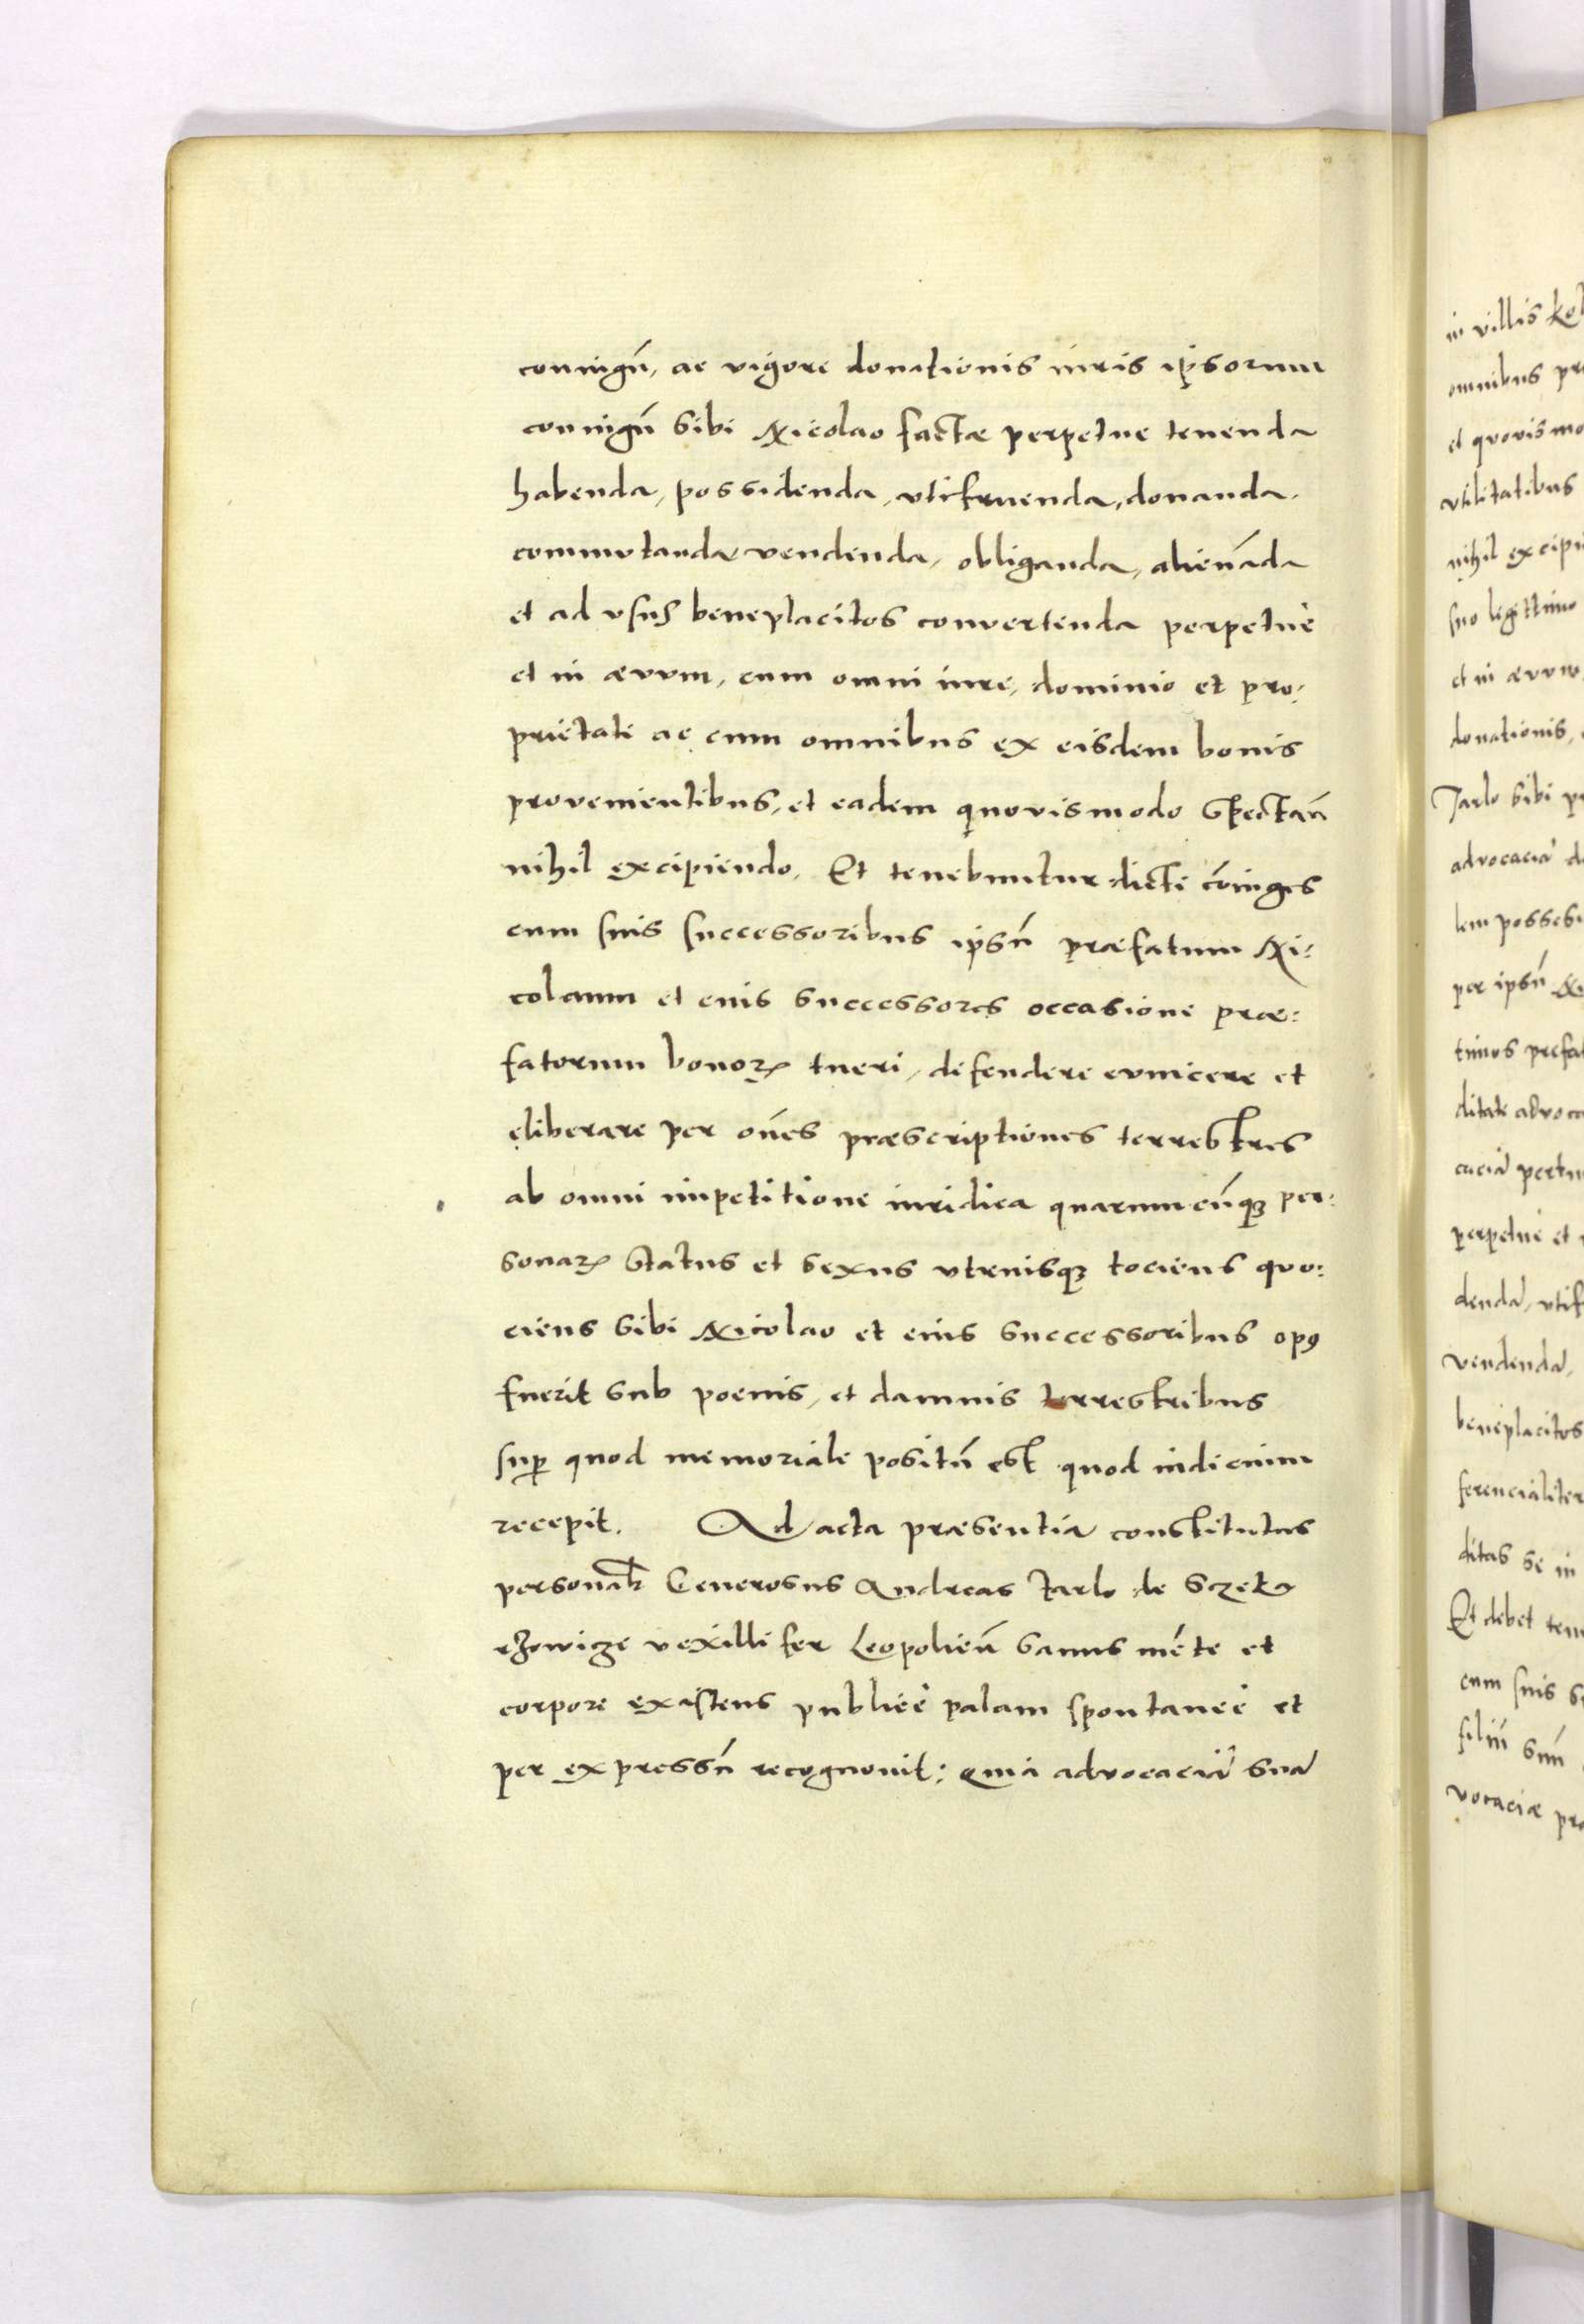 coniugũ, ac vigore donationis iuris ipsorum
coniugũ sibi Nicolao factæ perpetue tenenda
habenda, possidenda, vtifruenda, donanda,
commutanda, vendenda, obliganda, alienãda
et ad vsus beneplacitos convertenda perpetuè
et in ævvm, cum omni iure, dominio et pro:
prietate ac cum omnibus ex eisdem bonis
provenientibus, et eadem quovismodo spectañ
nihil excipiendo. Et tenebuntur dicti cõiuges
cum suis successoribus ipsũ præfatum Ni:
colaum et euis successores occasione præ:
fatorum bonoꝝ tueri, defendere evincere et
eliberare per oñes præscriptiones terrestres
ab omni impetitione iuridica quarumcũqꝫ per:
sonaꝝ status et sexus vtriusqꝫ tociens quo:
ciens sibi Nicolao et eius successoribus opꝰ
fuerit sub poenis, et damnis terrestribus
suꝑ quod memoriale positũ est quod iudicium
recepit. Ad acta præsentia constitutus
personalr Generosus Andreas Tarlo de Sczeka
rzowicze vexillifer Leopolieñ sanus mẽte et
corpore existens publicè palam spontaneè et
per expressũ recognovit: Quia advocaciã suã
in villis
omnibus
et quovis
vtilitatibus
nihil
suo legittimo
et in ævvm
donationis,
Tarlo sibi
advocaciã
per ipsũ
perpetuè et
vendenda,
beneplacitos
ferencialiter
ditas se in
Et debet
cum suis
filiũ suũ
vocaciæ